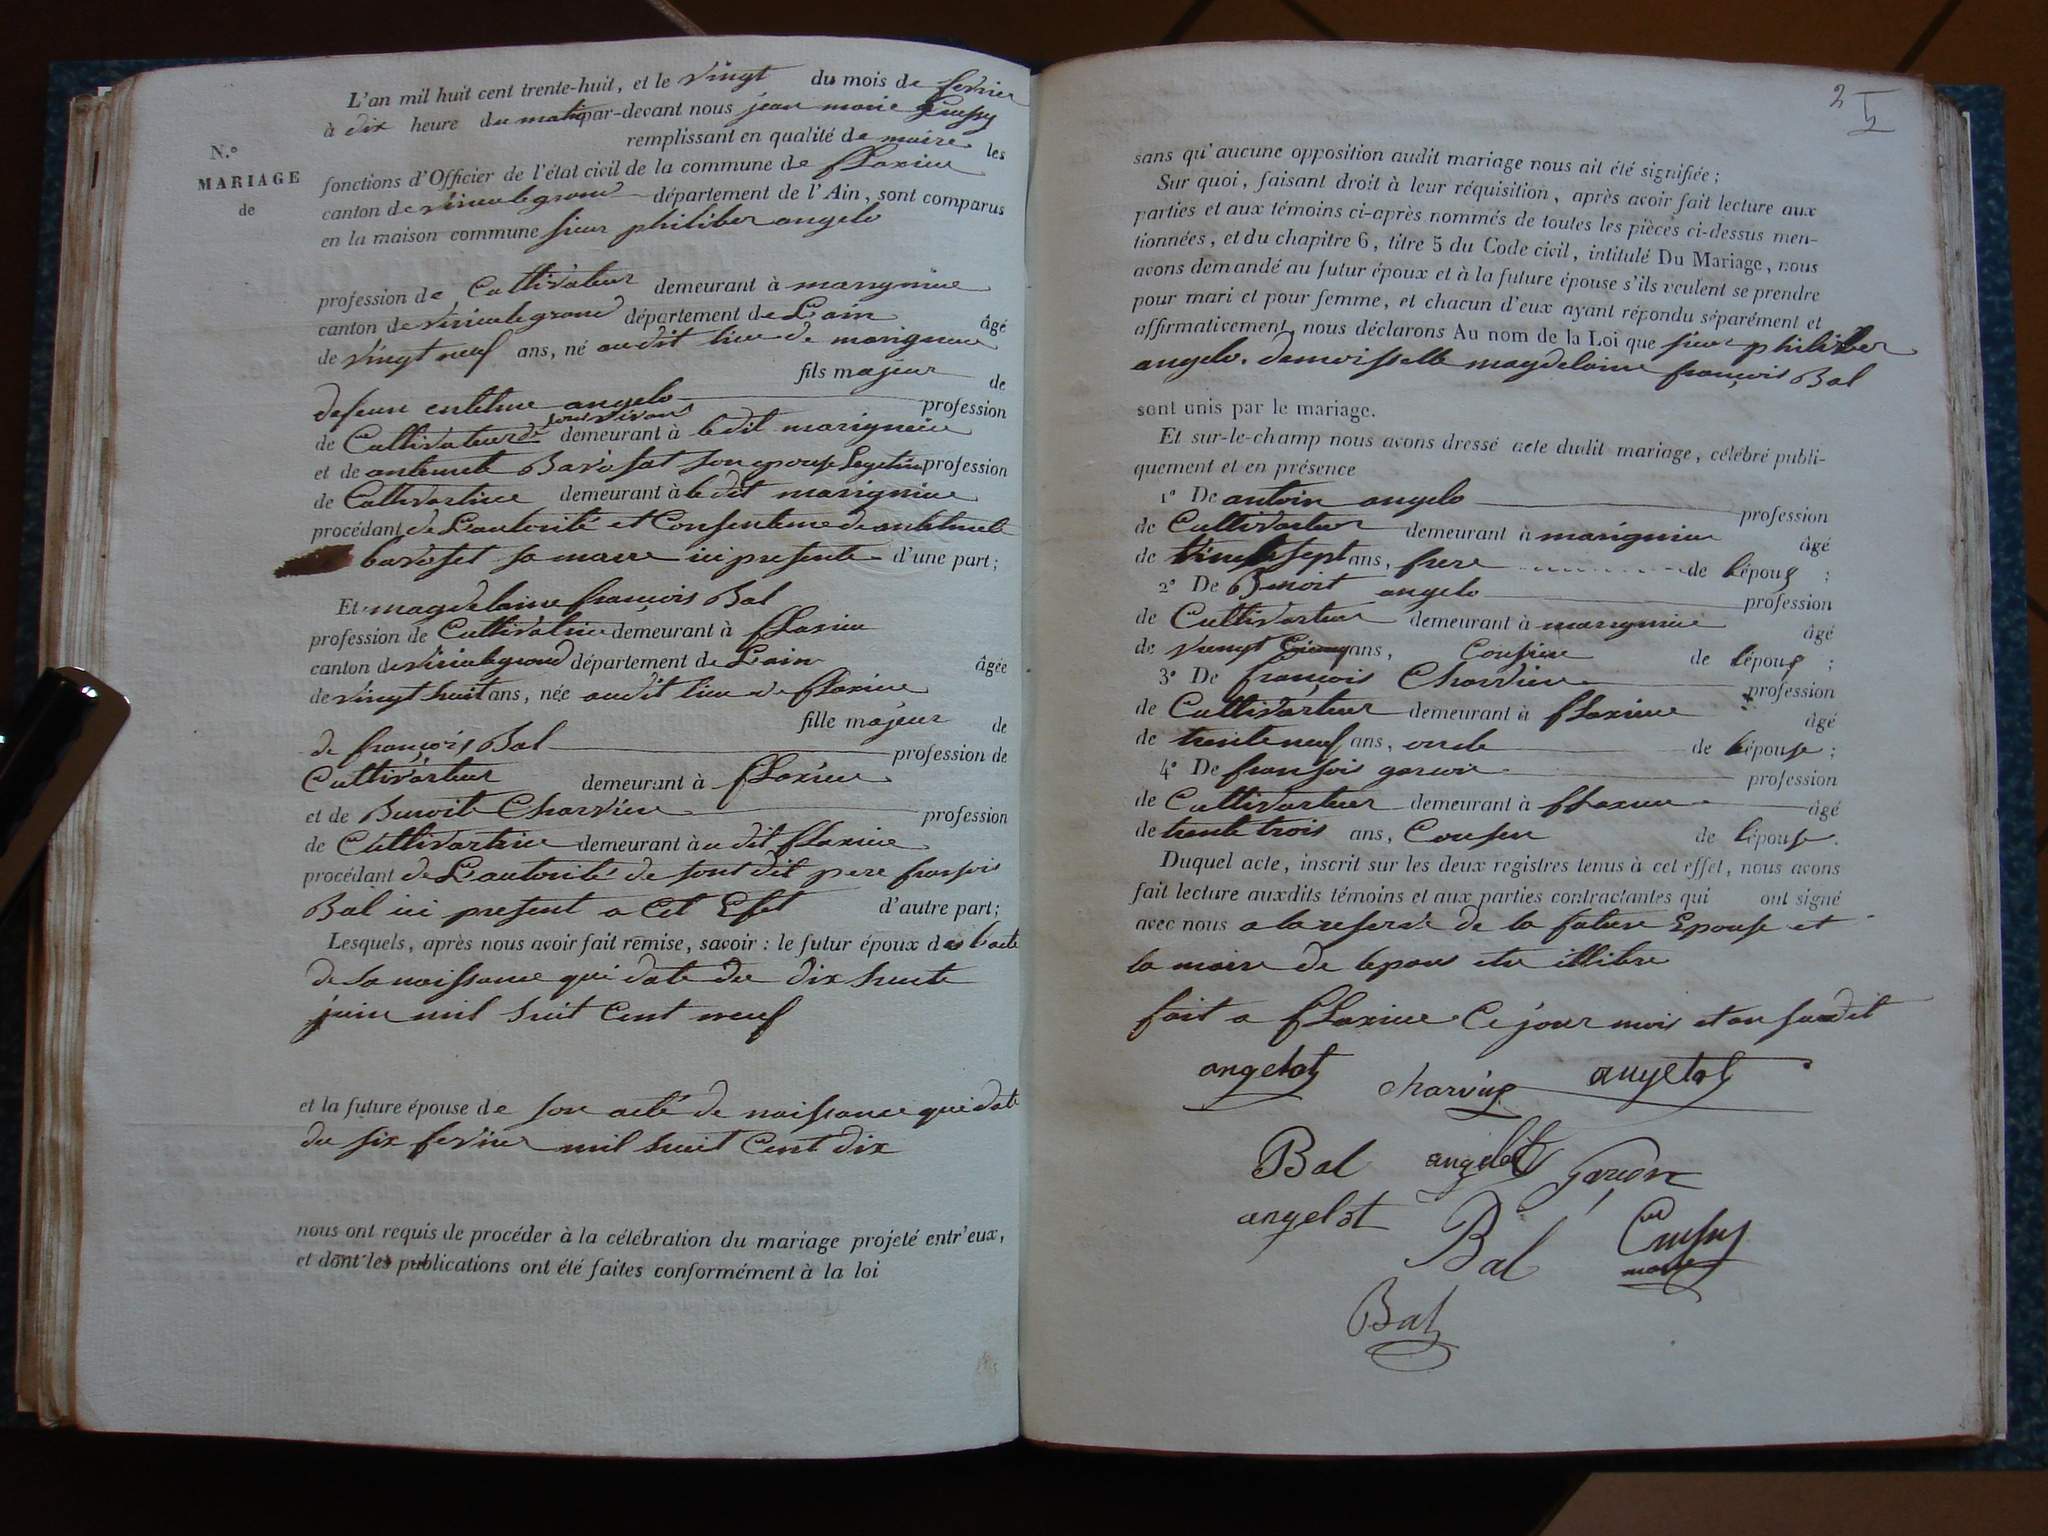 L'an mil huit cent trente-huit, et le vingt du mois de fevrier
à dix heure du matin par-devant nous jean marie Crussy
remplissant en qualité de maire les
N.º
MARIAGE
de
fonctions d'Officier de l'état civil de la commune de fLaxieu
canton de virieulegrand département de l'Ain, sont comparus
en la maison commune sieur philiber angelo
profession de Cultivateur demeurant à marignieu
canton de virieulegrand département de Lain âgé
de vingt neuf ans, né audit lieu de marignieu
fils majeur de
defeun entelme angelo profession
de Cultivateur de son vivant demeurant à ledit marignieu
et de antemete Bavosat son epouse Legetime profession
de Cultivatrice demeurant à ledit marignieu
procédant de Lautorité et Consenteme de antelmete
bavoset sa maire ici presente d'une part;
Et magdelaine françois Bal
profession de Cultivatrice demeurant à fLaxieu
canton de virieulegrand département de Lain âgée
de vingt huit ans, née audit lieu de fLaxieu
fille majeur de
de françois Bal profession de
Cultivateur demeurant à fLaxieu
et de Benoite Charvieu profession
de Cultivatrice demeurant à u dit fLaxieu
procédant de L'autorité de sont dit pere fransois
Bal ici present a Cet Efet d'autre part;
Lesquels, après nous avoir fait remise, savoir : le futur époux des l'acte
de sa naissance qui date du dix huite
juin mil huit Cent neuf
et la future épouse de son acte de naissance qui date
du six fevrier mil huit Cent dix
nous ont requis de procéder à la célébration du mariage projeté entr'eux,
et dont les publications ont été faites conformément à la loi
2
sans qu'aucune opposition audit mariage nous ait été signifiée;
Sur quoi, faisant droit à leur réquisition, après avoir fait lecture aux
parties et aux témoins ci-après nommés de toutes les pièces ci-dessus men-
tionnées, et du chapitre 6, titre 5 du Code civil, intitulé Du Mariage, nous
avons demandé au futur époux et à la future épouse s'ils veulent se prendre
pour mari et pour femme, et chacun d'eux ayant répondu séparément et
affirmativement, nous déclarons Au nom de la Loi que sieur philiber
angelo. demoisselle magdelaine françois Bal
sont unis par le mariage.
Et sur-le-champ nous avons dressé acte dudit mariage, célébré publi-
quement et en présence
1º De antoin angelo profession
de Cultivateur demeurant à marignieu âgé
de vingt sept ans, frere de lépoux ;
2º De Benoit angelo profession
de Cultivateur demeurant à marignieu âgé
de vuingt Cienq ans, Cousieu de lépoux ;
3º De françois Charvieu profession
de Cultivateur demeurant à fLaxieu âgé
de trente neuf ans, oncle de lépouse ;
4º De fransois garcon profession
de Cultivateur demeurant à fLaxieu âgé
de trente trois ans, Cousin de lépouse.
Duquel acte, inscrit sur les deux registres tenus à cet effet, nous avons
fait lecture auxdits témoins et aux parties contractantes qui ont signé
avec nous a la reserve de la future Epouse et
la maire de lepoux etre illitre
fait a fLaxieu Ce jour mois et an susdit
angelot charvieu angelot
Bal angelot garcon
angelot Bal Crussy
maire
Bal